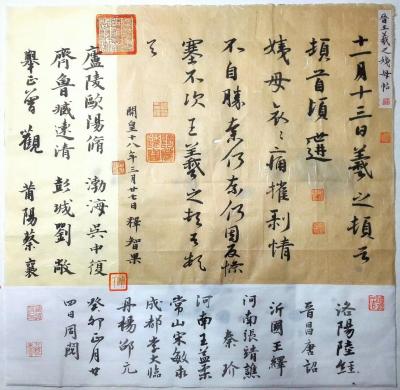 晉王羲之姨母帖
十一月十三日羲之頓首
頓首頃遘
姨母哀哀痛摧剝情
不自勝奈何奈何因反慘
塞不次王羲之頓首頓
首
開皇十八年三月廿七日釋智果
廬陵歐陽脩 渤海吳中復
齊魯臧逵清 彭城劉敞
舉正曾觀 莆陽蔡襄
洛陽陸經
晉昌唐詔
沂國王繹
河南張靖譙
秦玠
河南王益柔
常山宋敏求
成都李大臨
丹楊邵亢
癸卯正月廿
四日同閱